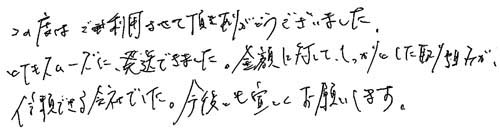 この度はご利用させて頂き有りがとうございました。
とてもスムーズに、発送できました。金額に対して、しっかりした取り組みが、
信頼できる会社でした。今後とも宜しくお願いします。